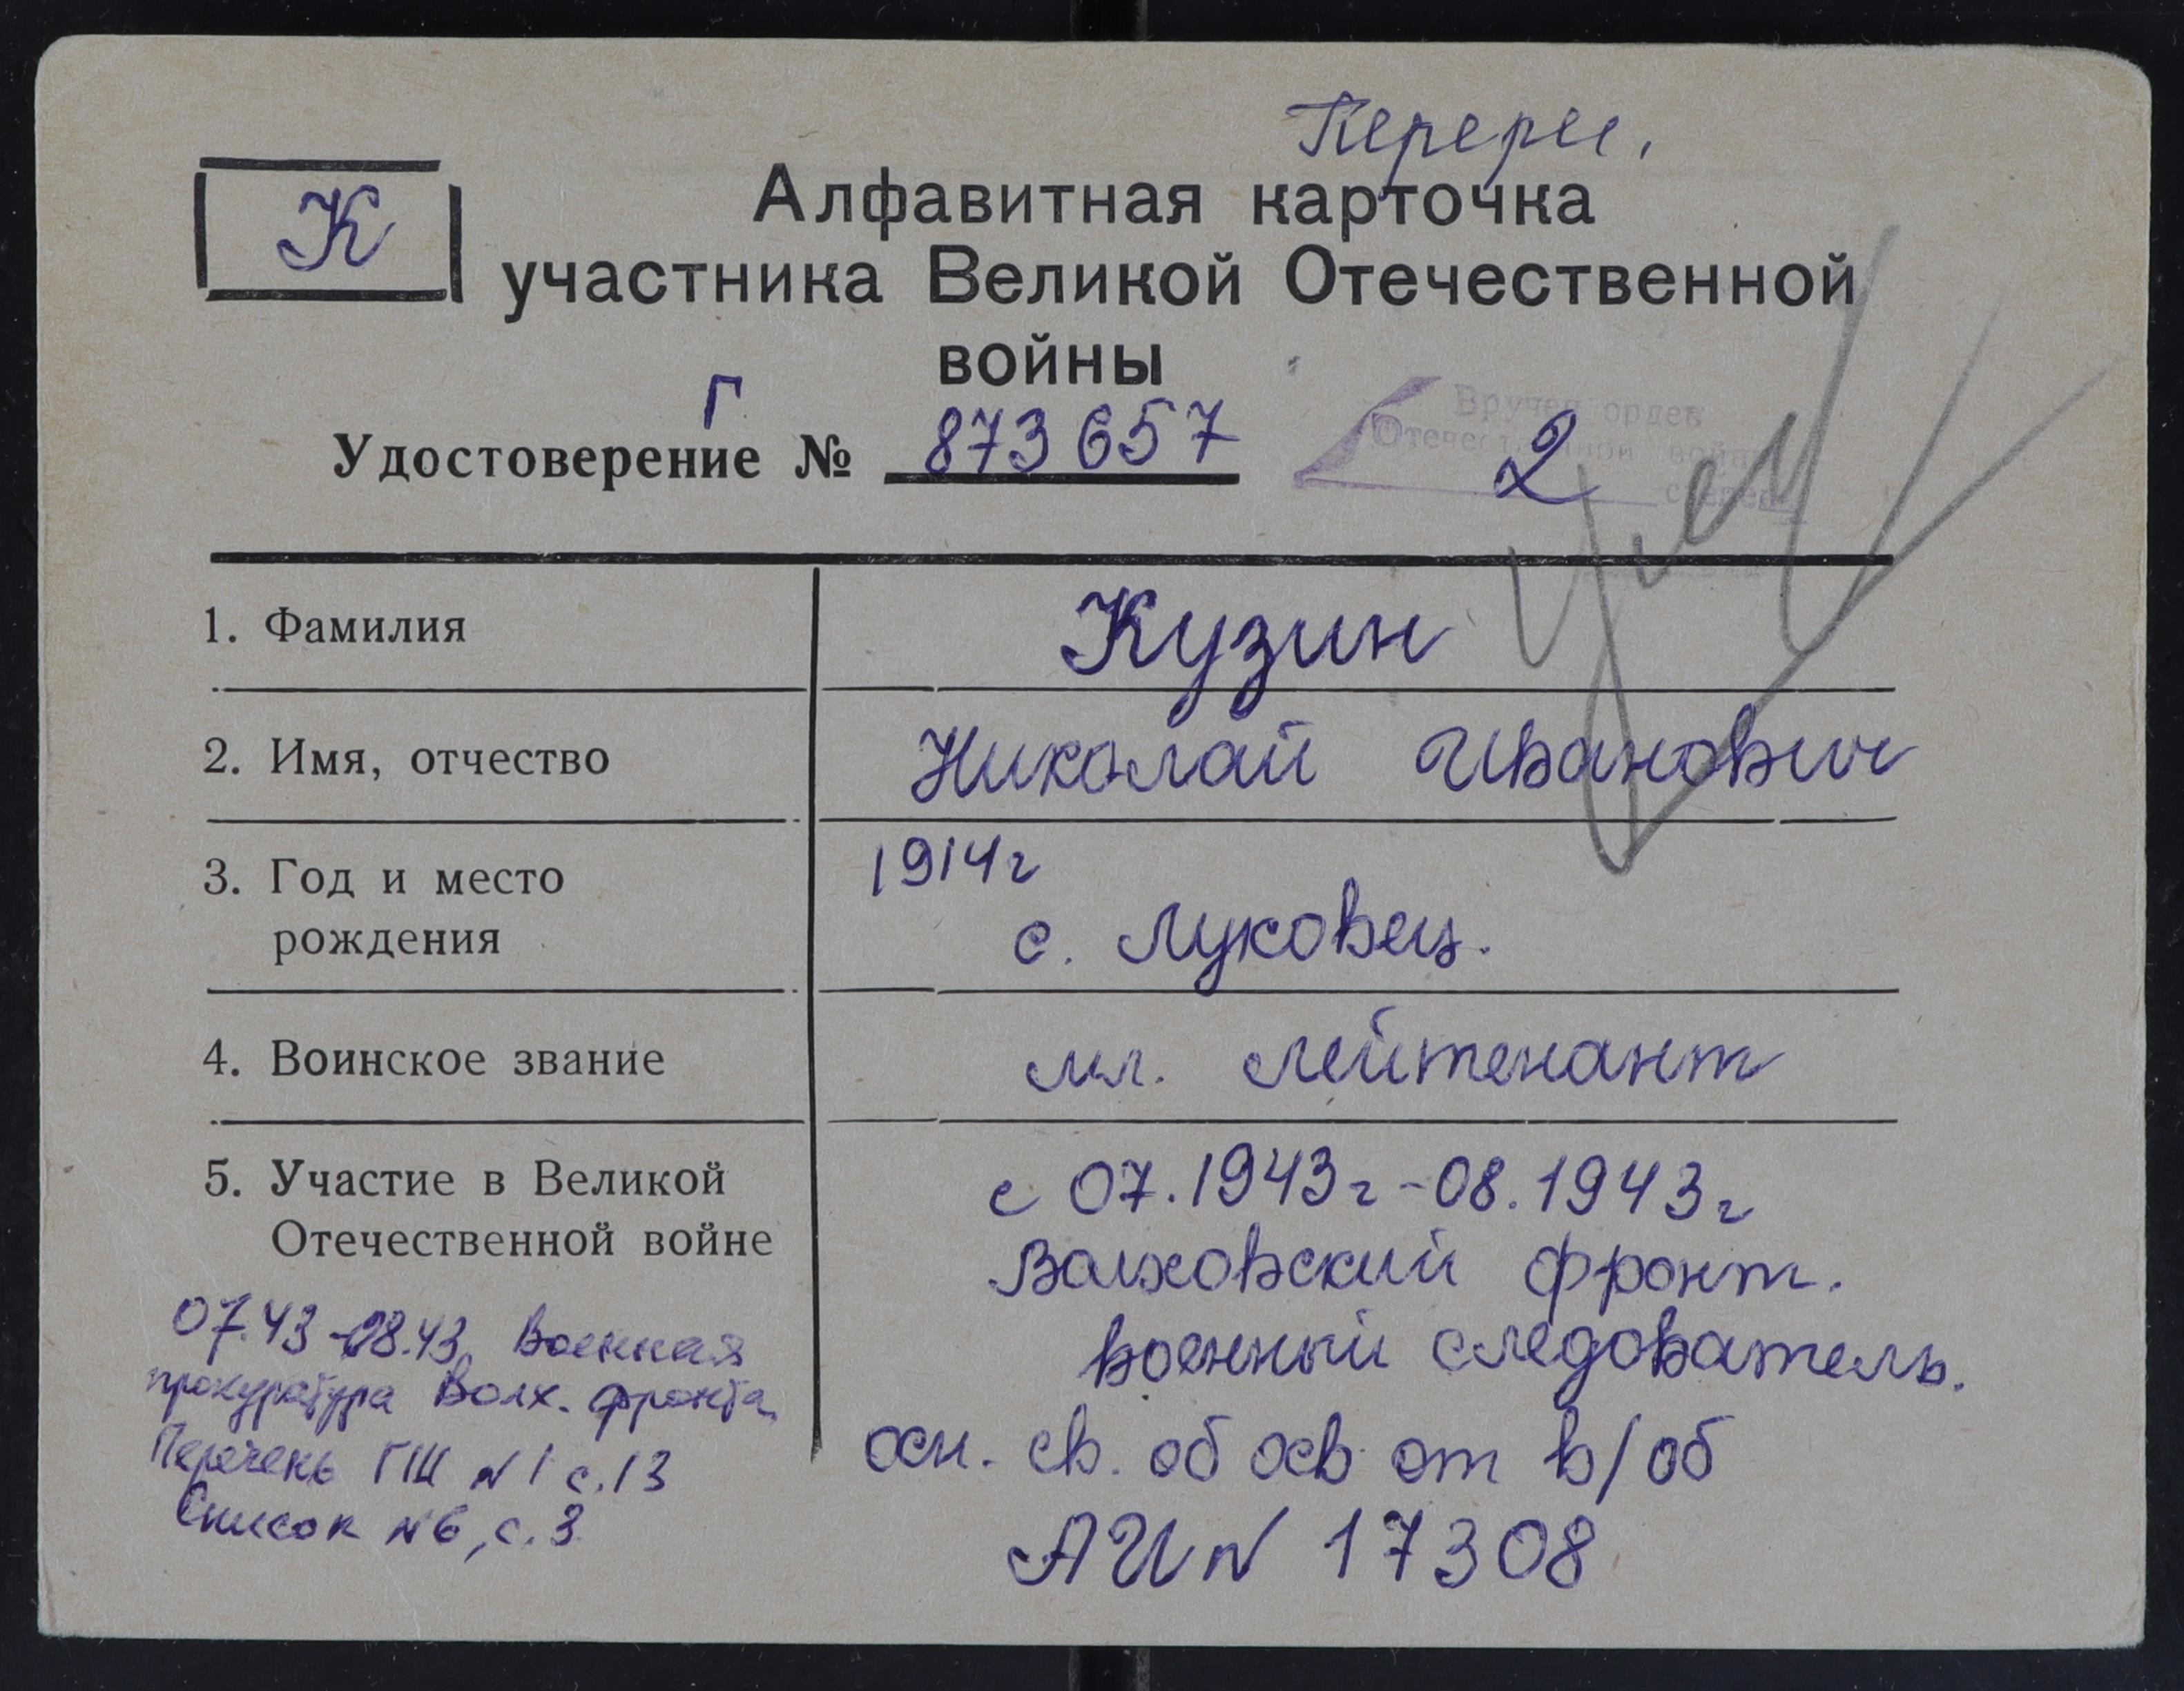 Перерег.
К
Алфавитная карточка
участника Великой Отечественной
войны
Г
Удостоверение № 873657
Вручен орден
Отечественной войны
2 степени
1. Фамилия Кузин
2. Имя, отчество Николай Иванович
3. Год и место 1914г
рождения с. Луковец.
4. Воинское звание мл. лейтенант
5. Участие в Великой с 07.1943г-08.1943г
Отечественной войне Волховский фронт.
военный следователь.
осн. св. об осв от в/об
АИ N 17308
07.43-08.43, Военная
прокуратура Волх. фронта,
Перечень ГШ N1 с.13
Список N6, с.3